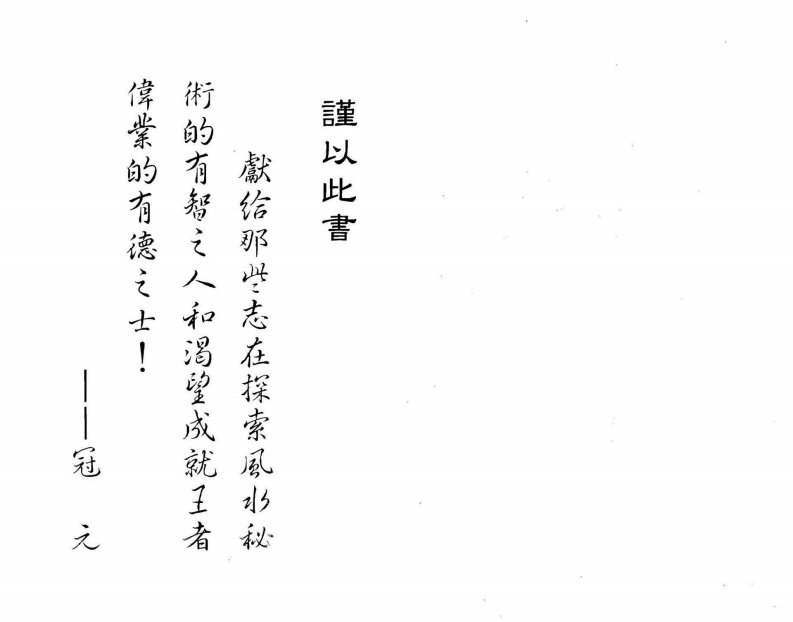 謹以此書
獻給那些志在探索風水秘
術的有智之人和渴望成就王者
偉業的有德之士！
——冠 元